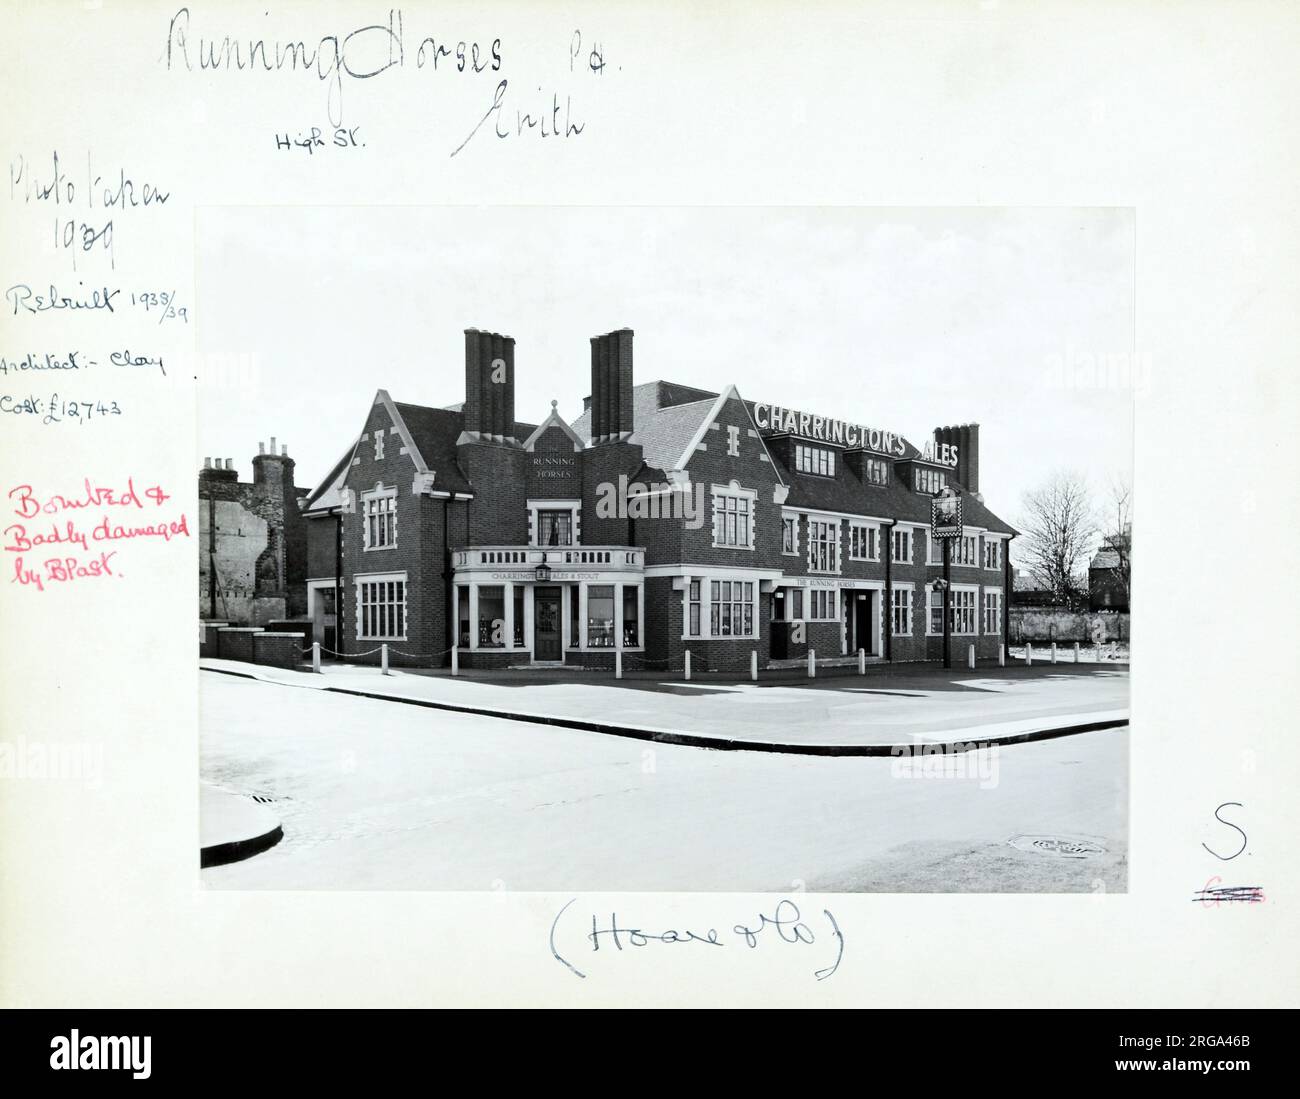 Running Horses P.H.
Erith
High St.
Photo taken
1939
Rebuilt 1938/39
Architect:- Clay
Cost: £12,743
Bombed &
Badly damaged
by Blast.
CHARRINGTON'S ALES
THE
RUNNING
HORSES
CHARRINGTON ALES & STOUT
THE RUNNING HORSES
S.
(Hoare & Co)
alamy
alamy
alamy
alamy
alamy
Image ID: 2RGA46B
www.alamy.com